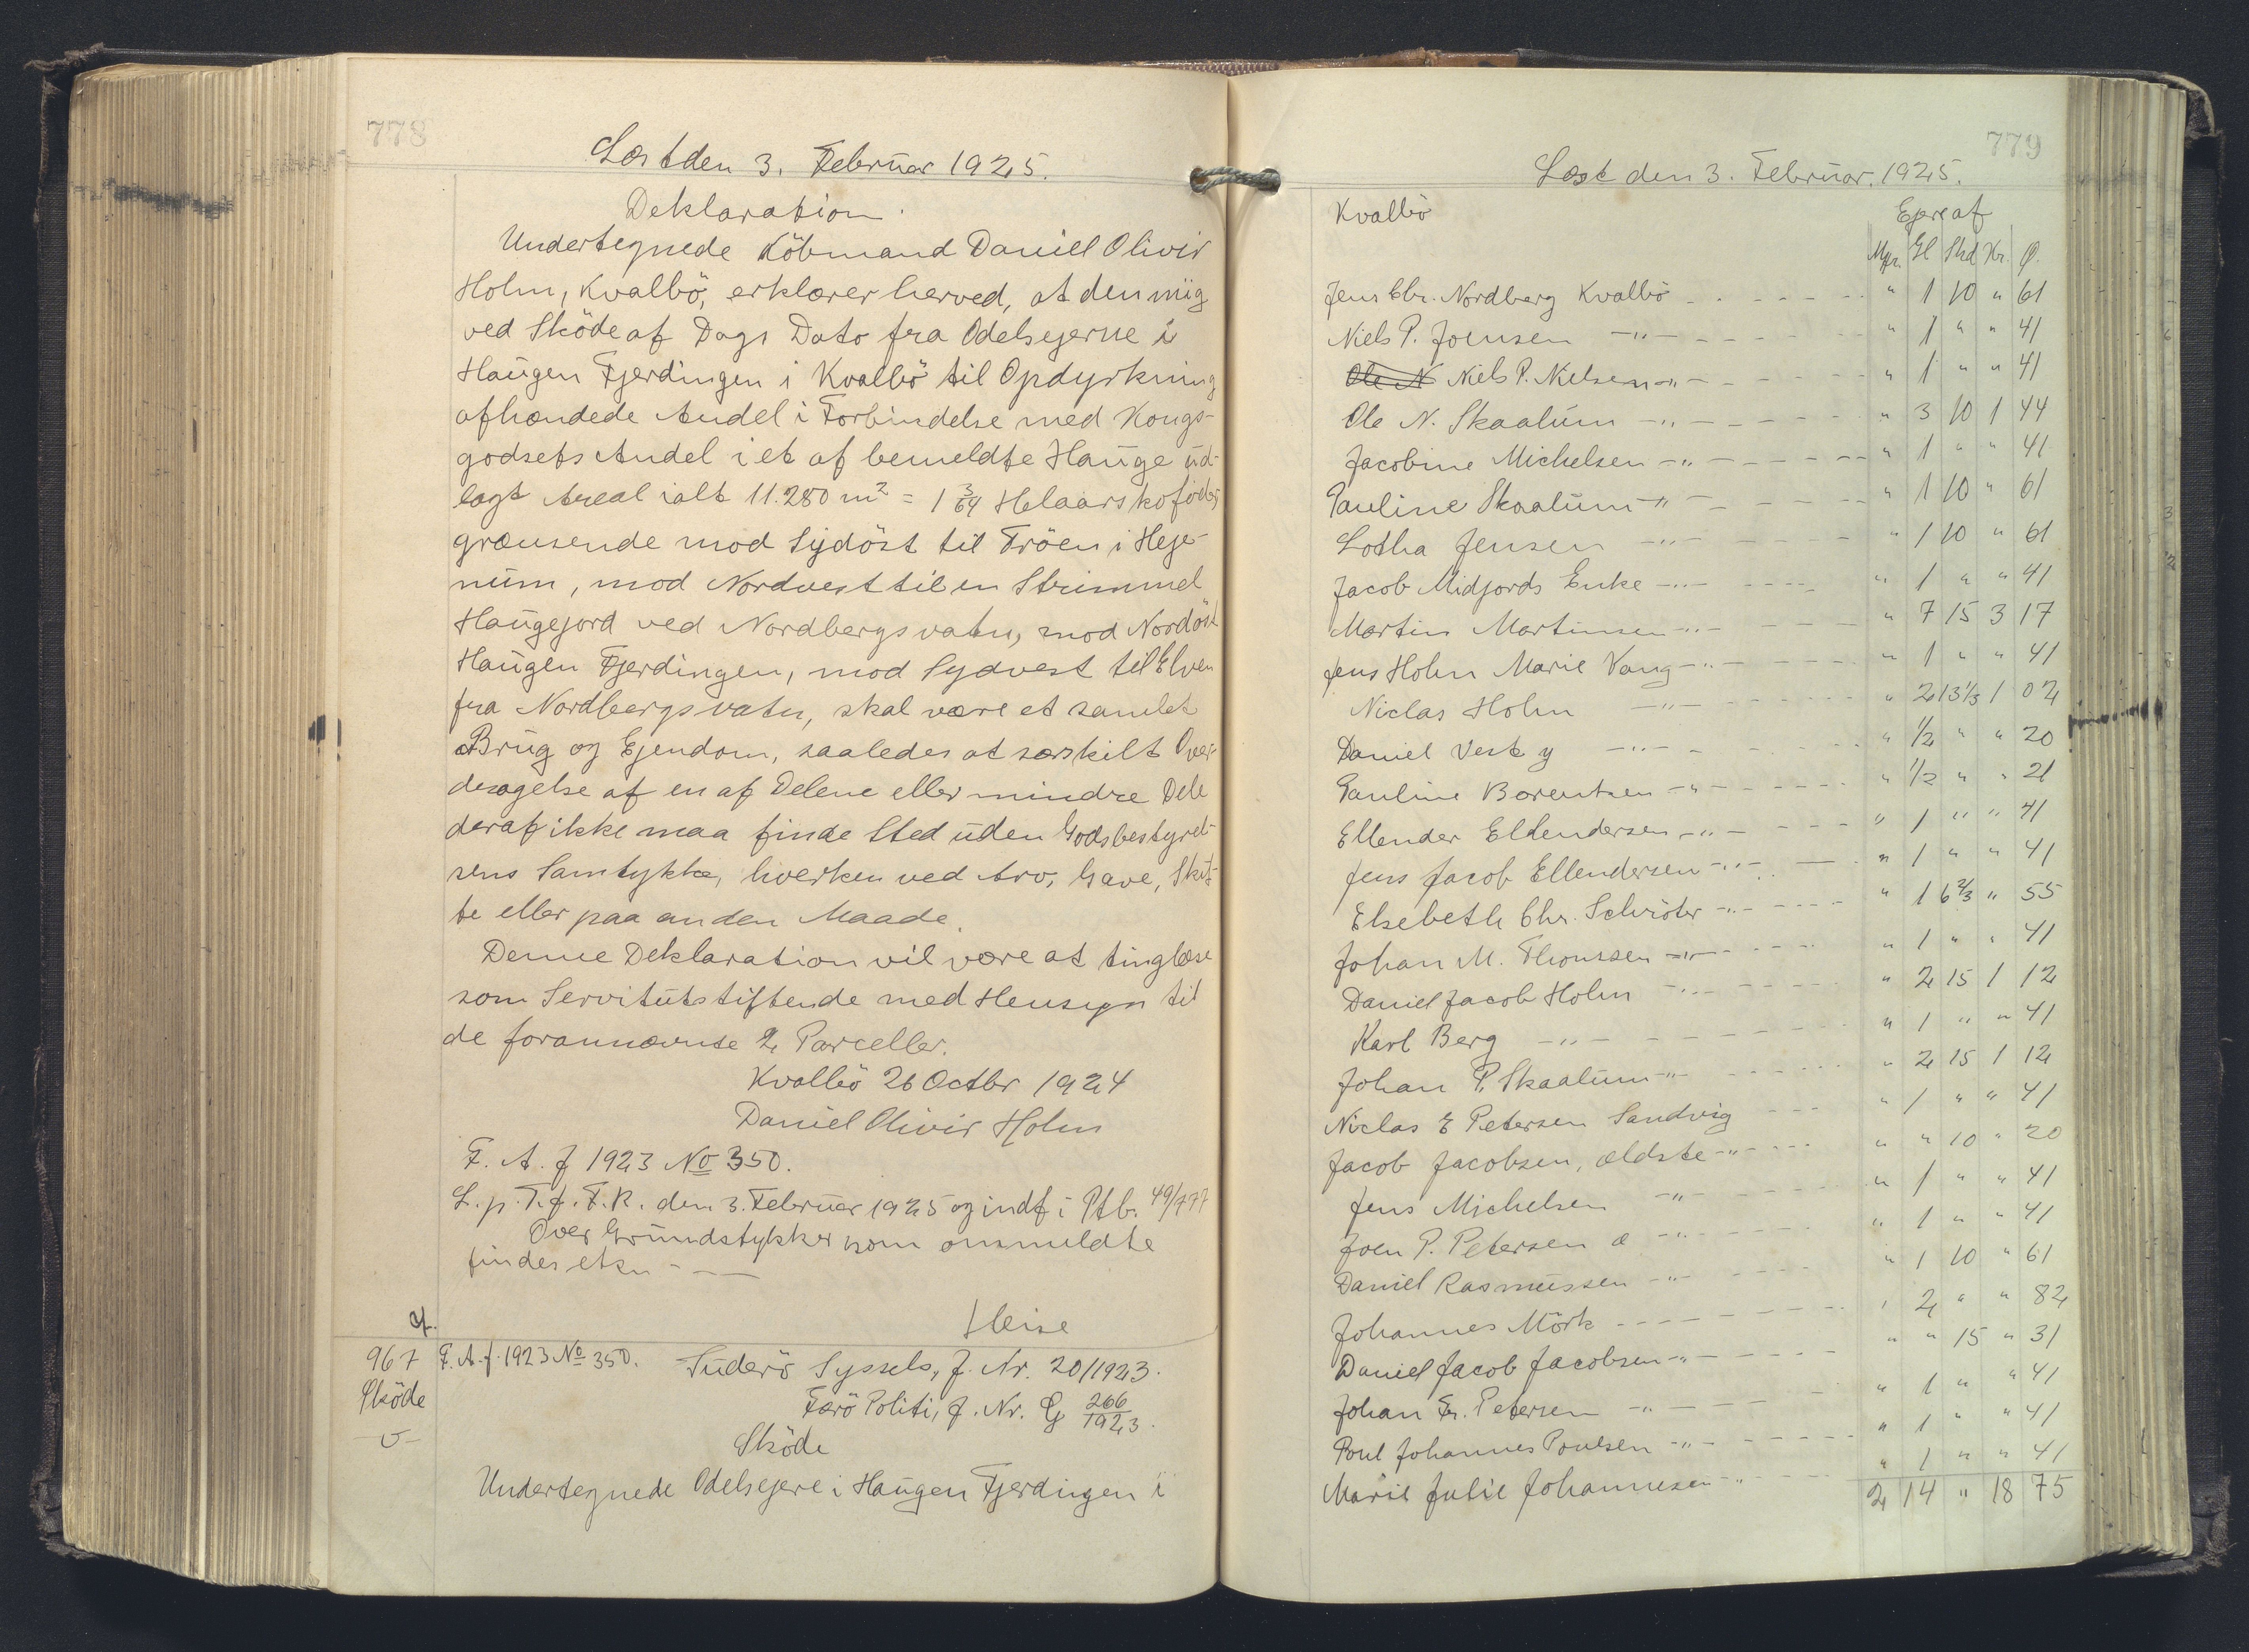 778
Læst den 3. Februar 1925.
Deklaration.
Undertegnede Köbmand Daniel Olivir
Holm, Kvalbö, erklærer herved, at den mig
ved Sköde af Dags Dato fra Odelsejerne i
Haugen Fjerdingen i Kvalbö til Opdyrkning
afhændede Andel i Forbindelse med Kongs-
godsets Andel i et af bemeldte Hauge ud-
lagt Areal ialt 11.280 m² = 1 3/64 Helaarskofoder
grænsende mod Sydöst til Tröen i Heje-
num, mod Nordvest til en Strimmel
Haugejord ved Nordbergsvatn, mod Nordöst
Haugen Fjerdingen, mod Sydvest til Elven
fra Nordbergsvatn, skal være et samlet
Brug og Ejendom, saaledes at særskilt Over-
dragelse af en af Delene eller mindre Dele
deraf ikke maa finde Sted uden Godsbestyrel-
sens Samtykke, hverken ved Arv, Gave, Skif-
te eller paa anden Maade.
Denne Deklaration vil være at tinglæse
som Servitutstiftende med Hensyn til
de forannævnte 2 Parceller.
Kvalbö 26 Octbr 1924
Daniel Olivir Holm
F. A. J 1923 No 350.
L. p. T. f. F. R. den 3. Februar 1925 og indf i Ptb. 49/777
Over Grundstykker som ommeldte
findes etsn - - —
Heise
967 F. A. J. 1923 No 350. Suderö Syssels, J. Nr. 20/1923.
Sköde Færö Politi, J. Nr. G 266/1923.
Sköde
Undertegnede Odelsejere i Haugen Fjerdingen i
779
Læst den 3. Februar. 1925.
Kvalbö Ejere af
Mrk. Gl Skd Kr. Ø.
Jens Chr. Nordberg Kvalbö - - - - " 1 10 " 61
Niels P. Joensen -"- - - - - " 1 " " 41
Ole N Niels P. Nielsen -"- - - - - " 1 " " 41
Ole N. Skaalum -"- - - - - " 3 10 1 44
Jacobine Michelsen -"- - - - - " 1 " " 41
Pauline Skaalum -"- - - - - " 1 10 " 61
Lotha Jensen -"- - - - - " 1 10 " 61
Jacob Midjords Enke -"- - - - - " 1 " " 41
Martin Martinsen -"- - - - " 7 15 3 17
Jens Holm Marie Vang -"- - - - " 1 " " 41
Niclas Holm -"- - - - - " 2 13 1/3 1 02
Daniel Vest y -"- - - - - " 1/2 " " 20
Pauline Borentsen -"- - - - " 1/2 " " 21
Ellender Ellendersen -"- - - - " 1 " " 41
Jens Jacob Ellendersen -"- - - " 1 " " 41
Elsebeth Chr. Schröter -"- - - - " 1 6 2/3 " 55
Johan M. Thomsen -"- - - - " 1 " " 41
Daniel Jacob Holm -"- - - - " 2 15 1 12
Karl Berg -"- - - - - " 1 " " 41
Johan P. Skaalum -"- - - - " 2 15 1 12
Niclas E Petersen Sandvig - - - " 1 " " 41
Jacob Jacobsen, ældste -"- - - - " " 10 " 20
Jens Michelsen -"- - - - " 1 " " 41
Joen P. Petersen æ -"- - - - " 1 " " 41
Daniel Rasmussen -"- - - - " 1 10 " 61
Johannes Mörk - - - - - " 2 " " 82
Daniel Jacob Jacobsen -"- - - - " " 15 " 31
Johan Fr. Petersen -"- - - - " 1 " " 41
Poul Johannes Poulsen -"- - - - " 1 " " 41
Marie Julie Johannesen -"- - - " 1 " " 41
2 14 " 18 75